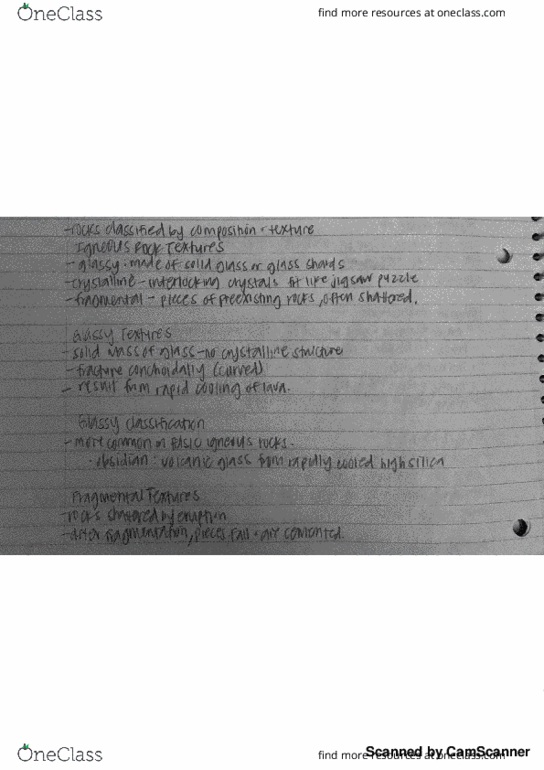 OneClass
find more resources at oneclass.com
-rocks classified by composition + texture
Igneous Rock Textures
- glassy - made of solid glass or glass shards
-crystalline - interlocking crystals fit like jigsaw puzzle
- fragmental - pieces of preexisting rocks, often shattered.
Glassy Textures
- solid mass of glass - no crystalline structure
- fracture conchoidally (curved)
- result from rapid cooling of lava.
Glassy classification
- more common in igneous rocks.
- obsidian: volcanic glass from rapidly cooled high silica
Fragmental Textures
-rocks shattered by eruption
-after fragmentation, pieces fall + are cemented.
OneClass
find more resources at oneclass.com
Scanned by CamScanner